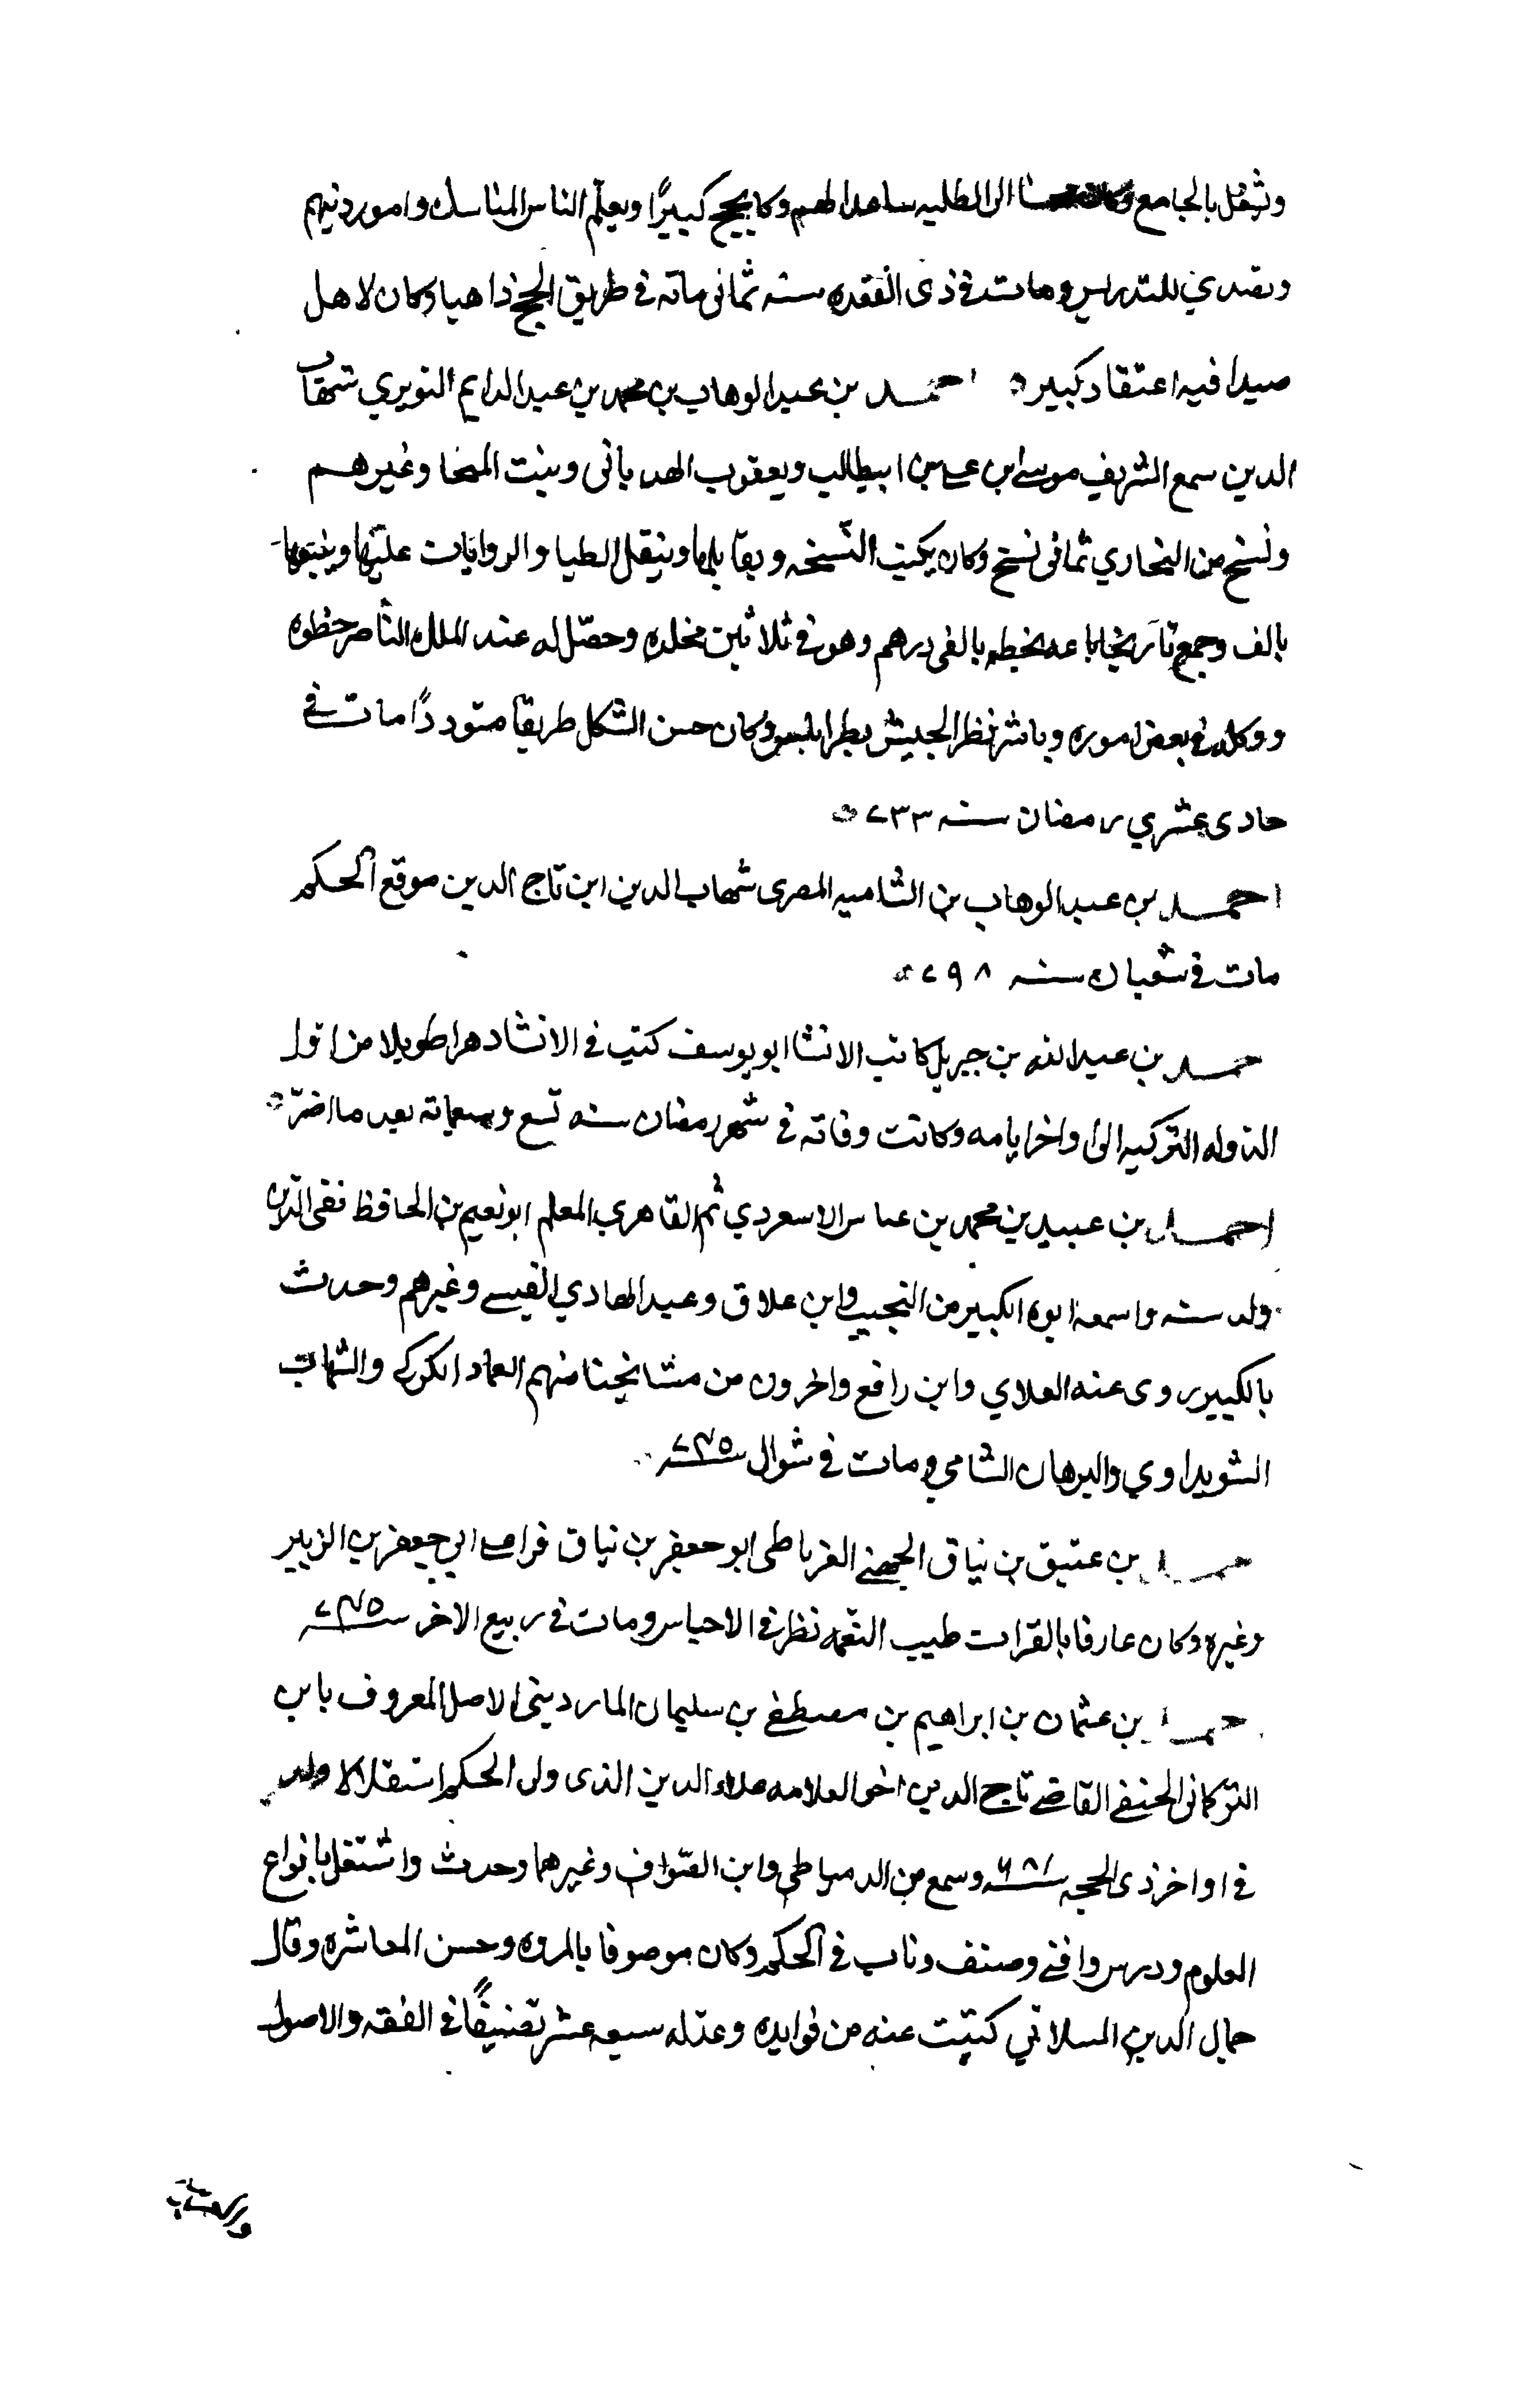 وشغل بالجامع وكان محسنا الى الطلبه ساعدا لهم وكان يحج كثيرًا ويعلّم الناس المناسك وامور دينهم
وتصدي للتدريس ومات في ذى القعده سنه ثمانى مائه في طريق الحج ذاهبا وكان لاهل
صيدا فيه اعتقاد كبير ه احمد بن عبد الوهاب بن محمد بن عبد الدايم النويري شهاب
الدين سمع الشريف موسى ابن على بن ابيطالب ويعقوب الهدبانى وبنت المنجا وغيرهم
ونسخ من البخاري ثمانى نسخ وكان يكتب النّسخه ويقابلها وينقل الطباق والروايات عليها ويبيعها
بالف وجمع تاريخا باعه بخطه بالفى درهم وهو في ثلاثين مجلده وحصّل له عند الملك الناصر حظوه
ووكله في بعض اموره وباشر نظر الجيش بطرابلس وكان حسن الشكل ظريفا متوددًا مات في
حادى عشري رمضان سنه ٧٣٣ ه
احمد بن عبد الوهاب بن الشاميه المصرى شهاب الدين ابن تاج الدين موقع الحكم
مات في شعبان سنه ٧٩٨ ه
حمد بن عبد الله بن جبريل كاتب الانشا ابو يوسف كتب في الانشا دهرا طويلا من اول
الدوله التركيه الى اواخر ايامه وكانت وفاته في شهر رمضان سنه تسع وسبعمائه بعد ما اضرّ ه
احمد بن عبيد بن محمد بن عباس الاسعردي ثم القاهري المعلم ابو نعيم بن الحافظ تقى الدين
ولد سنه واسمعه ابوه الكبير من النجيب وابن علاق وعبد الهادي القيسي وغيرهم وحدث
بالكبير روى عنه العلاي وابن رافع واخرون من مشائخنا منهم العماد الكركي والشهاب
الشويداوي والبرهان الشامي ومات في شوال سنه ٧٤٥
حمد بن عتيق بن نياق الجهني الغرناطى ابو جعفر بن نياق قرا على ابي جعفر بن الزبير
وغيره وكان عارفا بالقرات طيب النغمه نظر في الاحباس ومات في ربيع الاخر سنه ٧٤٥
حمد بن عثمان بن ابراهيم بن مصطفى بن سليمان الماردينى الاصل المعروف بابن
التركمانى الحنفي القاضي تاج الدين اخو العلامه علاء الدين الذى ولى الحكم استقلالا ولد
في اواخر ذى الحجه سنه ٦٨١ وسمع من الدمياطى وابن الصّواف وغيرهما وحدث واشتغل بانواع
العلوم ودرس وافتى وصنف وناب في الحكم وكان موصوفا بالمروه وحسن المعاشره وقال
جمال الدين المسلاتي كتبت عنه من فوايده وعدّ له سبعه عشر تصنيفًا في الفقه والاصول